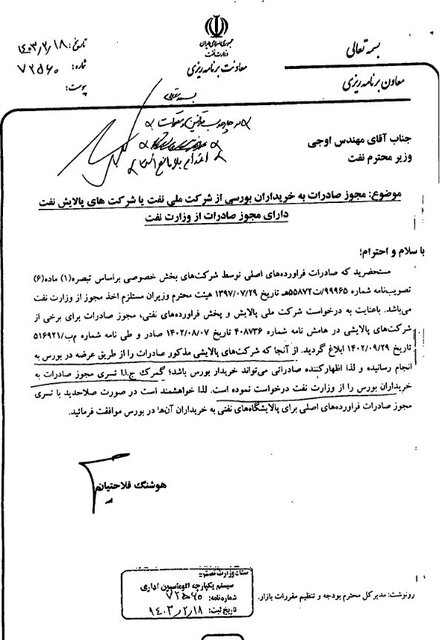 بسمه تعالی
جمهوری اسلامی ایران
وزارت نفت
معاونت برنامه ریزی
معاون برنامه ریزی
تاریخ: ۱۴۰۳/۲/۱۸
شماره: ۷۲۵۶۰
پیوست:
جناب آقای مهندس اوجی
وزیر محترم نفت
موضوع: مجوز صادرات به خریداران بورسی از شرکت ملی نفت یا شرکت های پالایش نفت
دارای مجوز صادرات از وزارت نفت
با سلام و احترام؛
مستحضرید که صادرات فراورده‌های اصلی توسط شرکت‌های بخش خصوصی براساس تبصره(۱) ماده(۶)
تصویب‌نامه شماره ۹۹۹۶۵/ت۵۵۸۷۲هـ تاریخ ۱۳۹۷/۰۷/۲۹ هیئت محترم وزیران مستلزم اخذ مجوز از وزارت نفت
می‌باشد. باعنایت به درخواست شرکت ملی پالایش و پخش فرآورده‌های نفتی، مجوز صادرات برای برخی از
شرکت‌های پالایشی در هامش نامه شماره ۴۰۸۷۳۶ تاریخ ۱۴۰۲/۰۸/۰۷ صادر و طی نامه شماره م‌ب/۵۱۶۹۲۱
تاریخ ۱۴۰۲/۰۹/۲۹ ابلاغ گردید. از آنجا که شرکت‌های پالایشی مذکور صادرات را از طریق عرضه در بورس به
انجام رسانیده و لذا اظهارکننده صادراتی می‌تواند خریدار بورس باشد؛ گمرک ج.ا.ا تسری مجوز صادرات به
خریداران بورس را از وزارت نفت درخواست نموده است. لذا خواهشمند است در صورت صلاحدید با تسری
مجوز صادرات فراورده‌های اصلی برای پالایشگاه‌های نفتی به خریداران آن‌ها در بورس موافقت فرمائید.
هوشنگ فلاحتیان
ستاد وزارت نفت
سیستم یکپارچه اتوماسیون اداری
شماره نامه: ۷۲۵۶۰
تاریخ ثبت: ۱۴۰۳/۲/۱۸
رونوشت: مدیرکل محترم بودجه و تنظیم مقررات بازار.